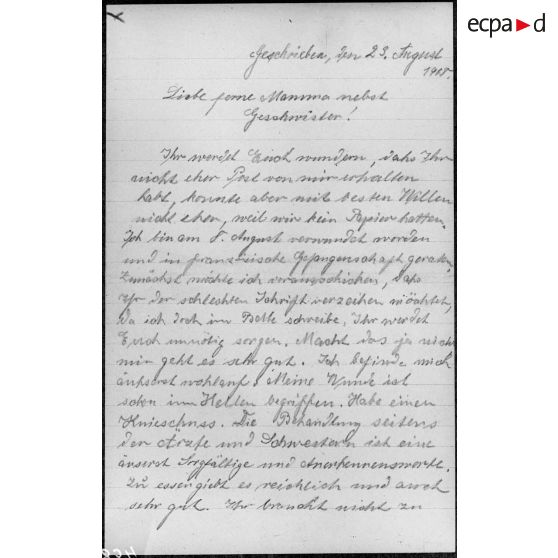 ecpad
Geschrieben, den 23. August
1918.
Liebe ferne Mamma nebst
Geschwister!
Ihr werdet Euch wundern, dahs Ihr
nicht eher Post von mir erhalten
habt, konnte aber mit besten Willen
nicht eher, weil wir kein Papier hatten.
Ich bin am 8. August verwundet worden
und in französische Gefangenschaft geraten.
Zunächst möchte ich vorausschicken, dahs
Ihr der schlechten Schrift verzeihen möchtet,
da ich doch im Bette schreibe. Ihr werdet
Euch unnötig sorgen. Macht das ja nicht
mir geht es sehr gut. Ich befinde mich
äußerst wohlauf. Meine Wunde ist
schon im Heilen begriffen. Habe einen
Knieschuss. Die Behandlung seitens
der Ärzte und Schwestern ist eine
äusserst Sorgfältige und Anerkennenswerte.
Zu essen giebt es reichlich und auch
sehr gut. Ihr braucht nicht zu